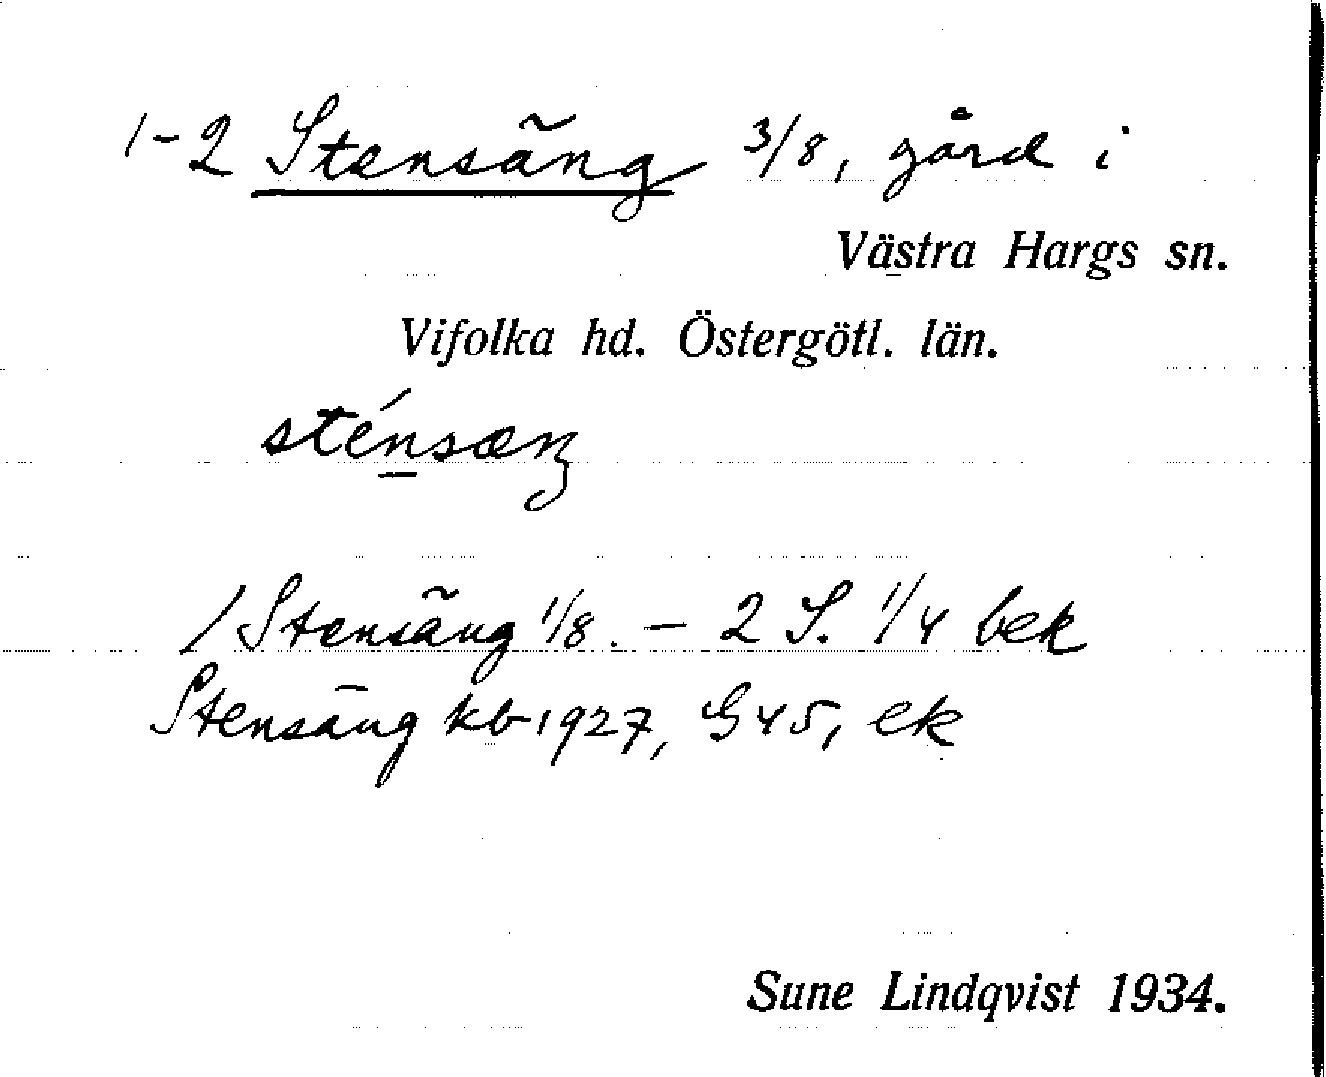 1-2 Stensäng 3/8, gård i
Västra Hargs sn.
Vifolka hd. Östergötl. län.
sténsæŋ
1 Stensäng 1/8. - 2 S. 1/4 bek
Stensäng kb 1927, G45, ek
Sune Lindqvist 1934.